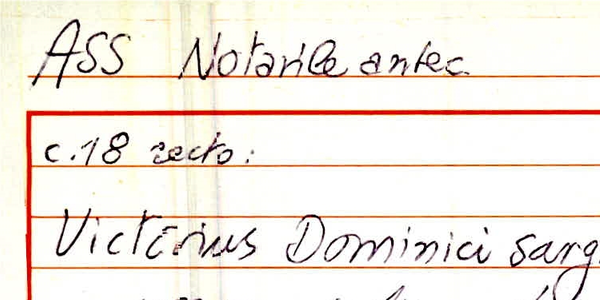 ASS Notarile antec.
c.18 recto:
Victorius Dominici sarg